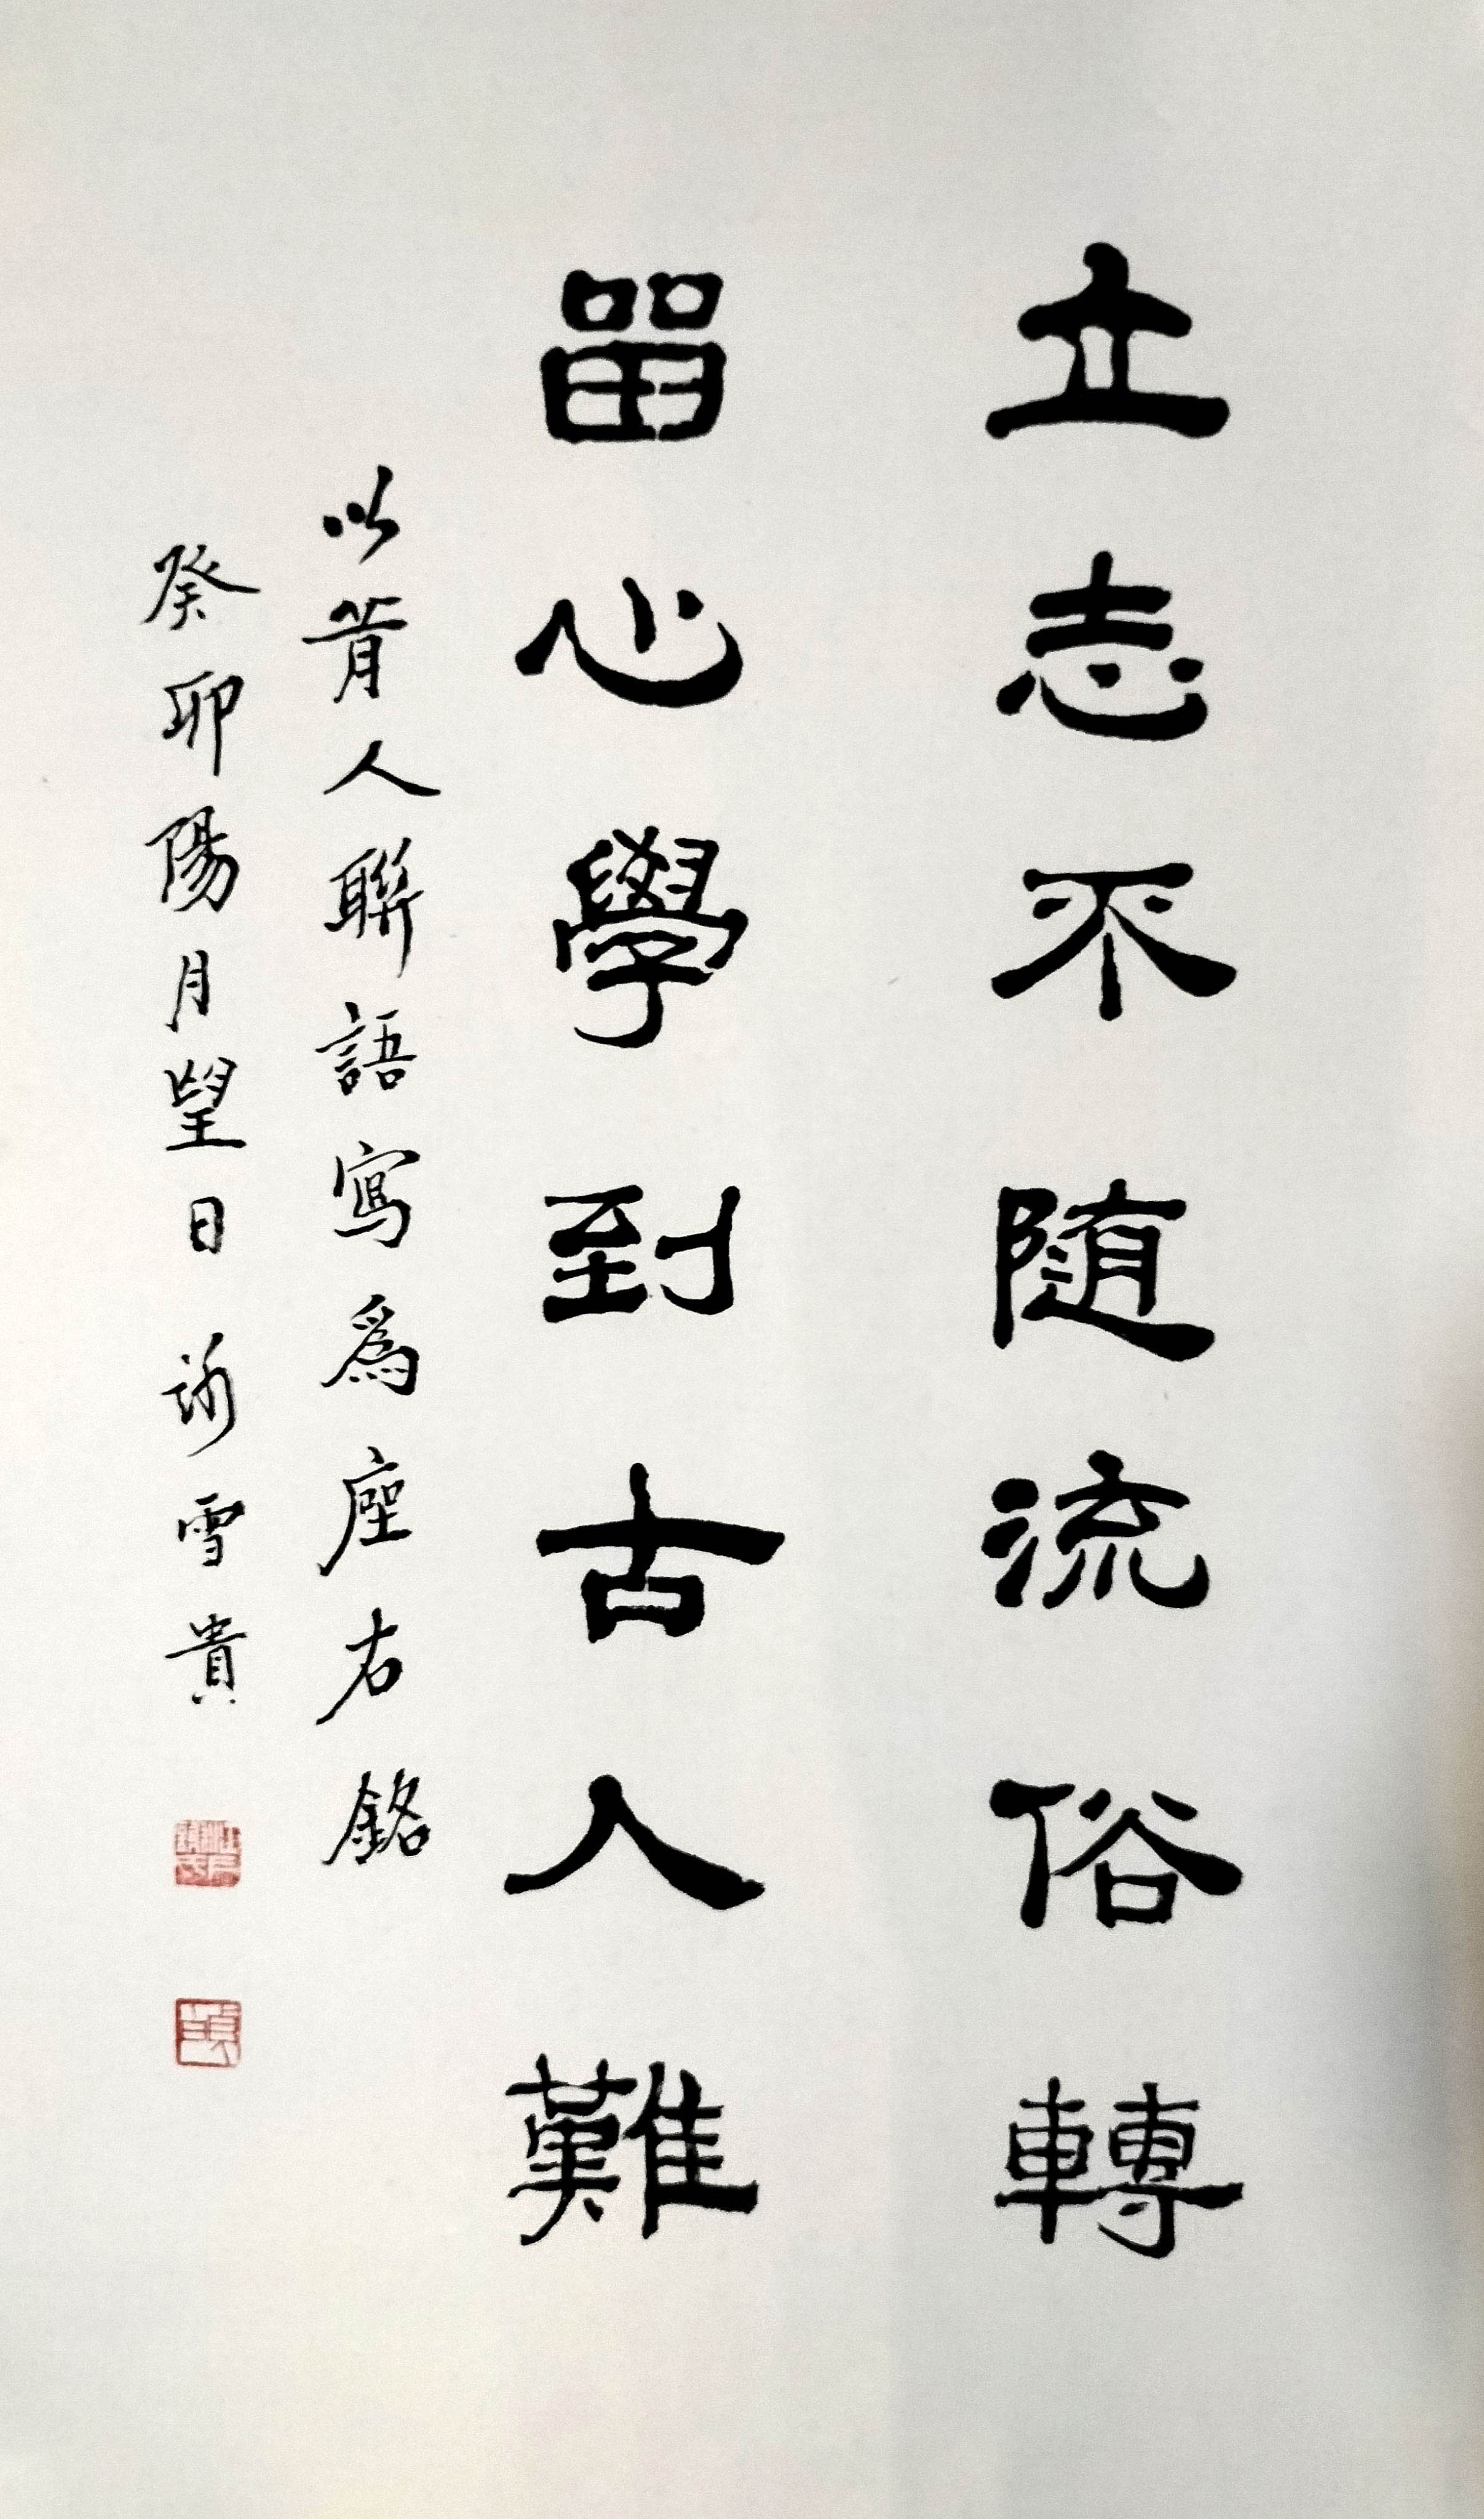 立志不随流俗轉
畱心學到古人難
以昔人聯語寫為座右銘
癸卯陽月望日 雪貴